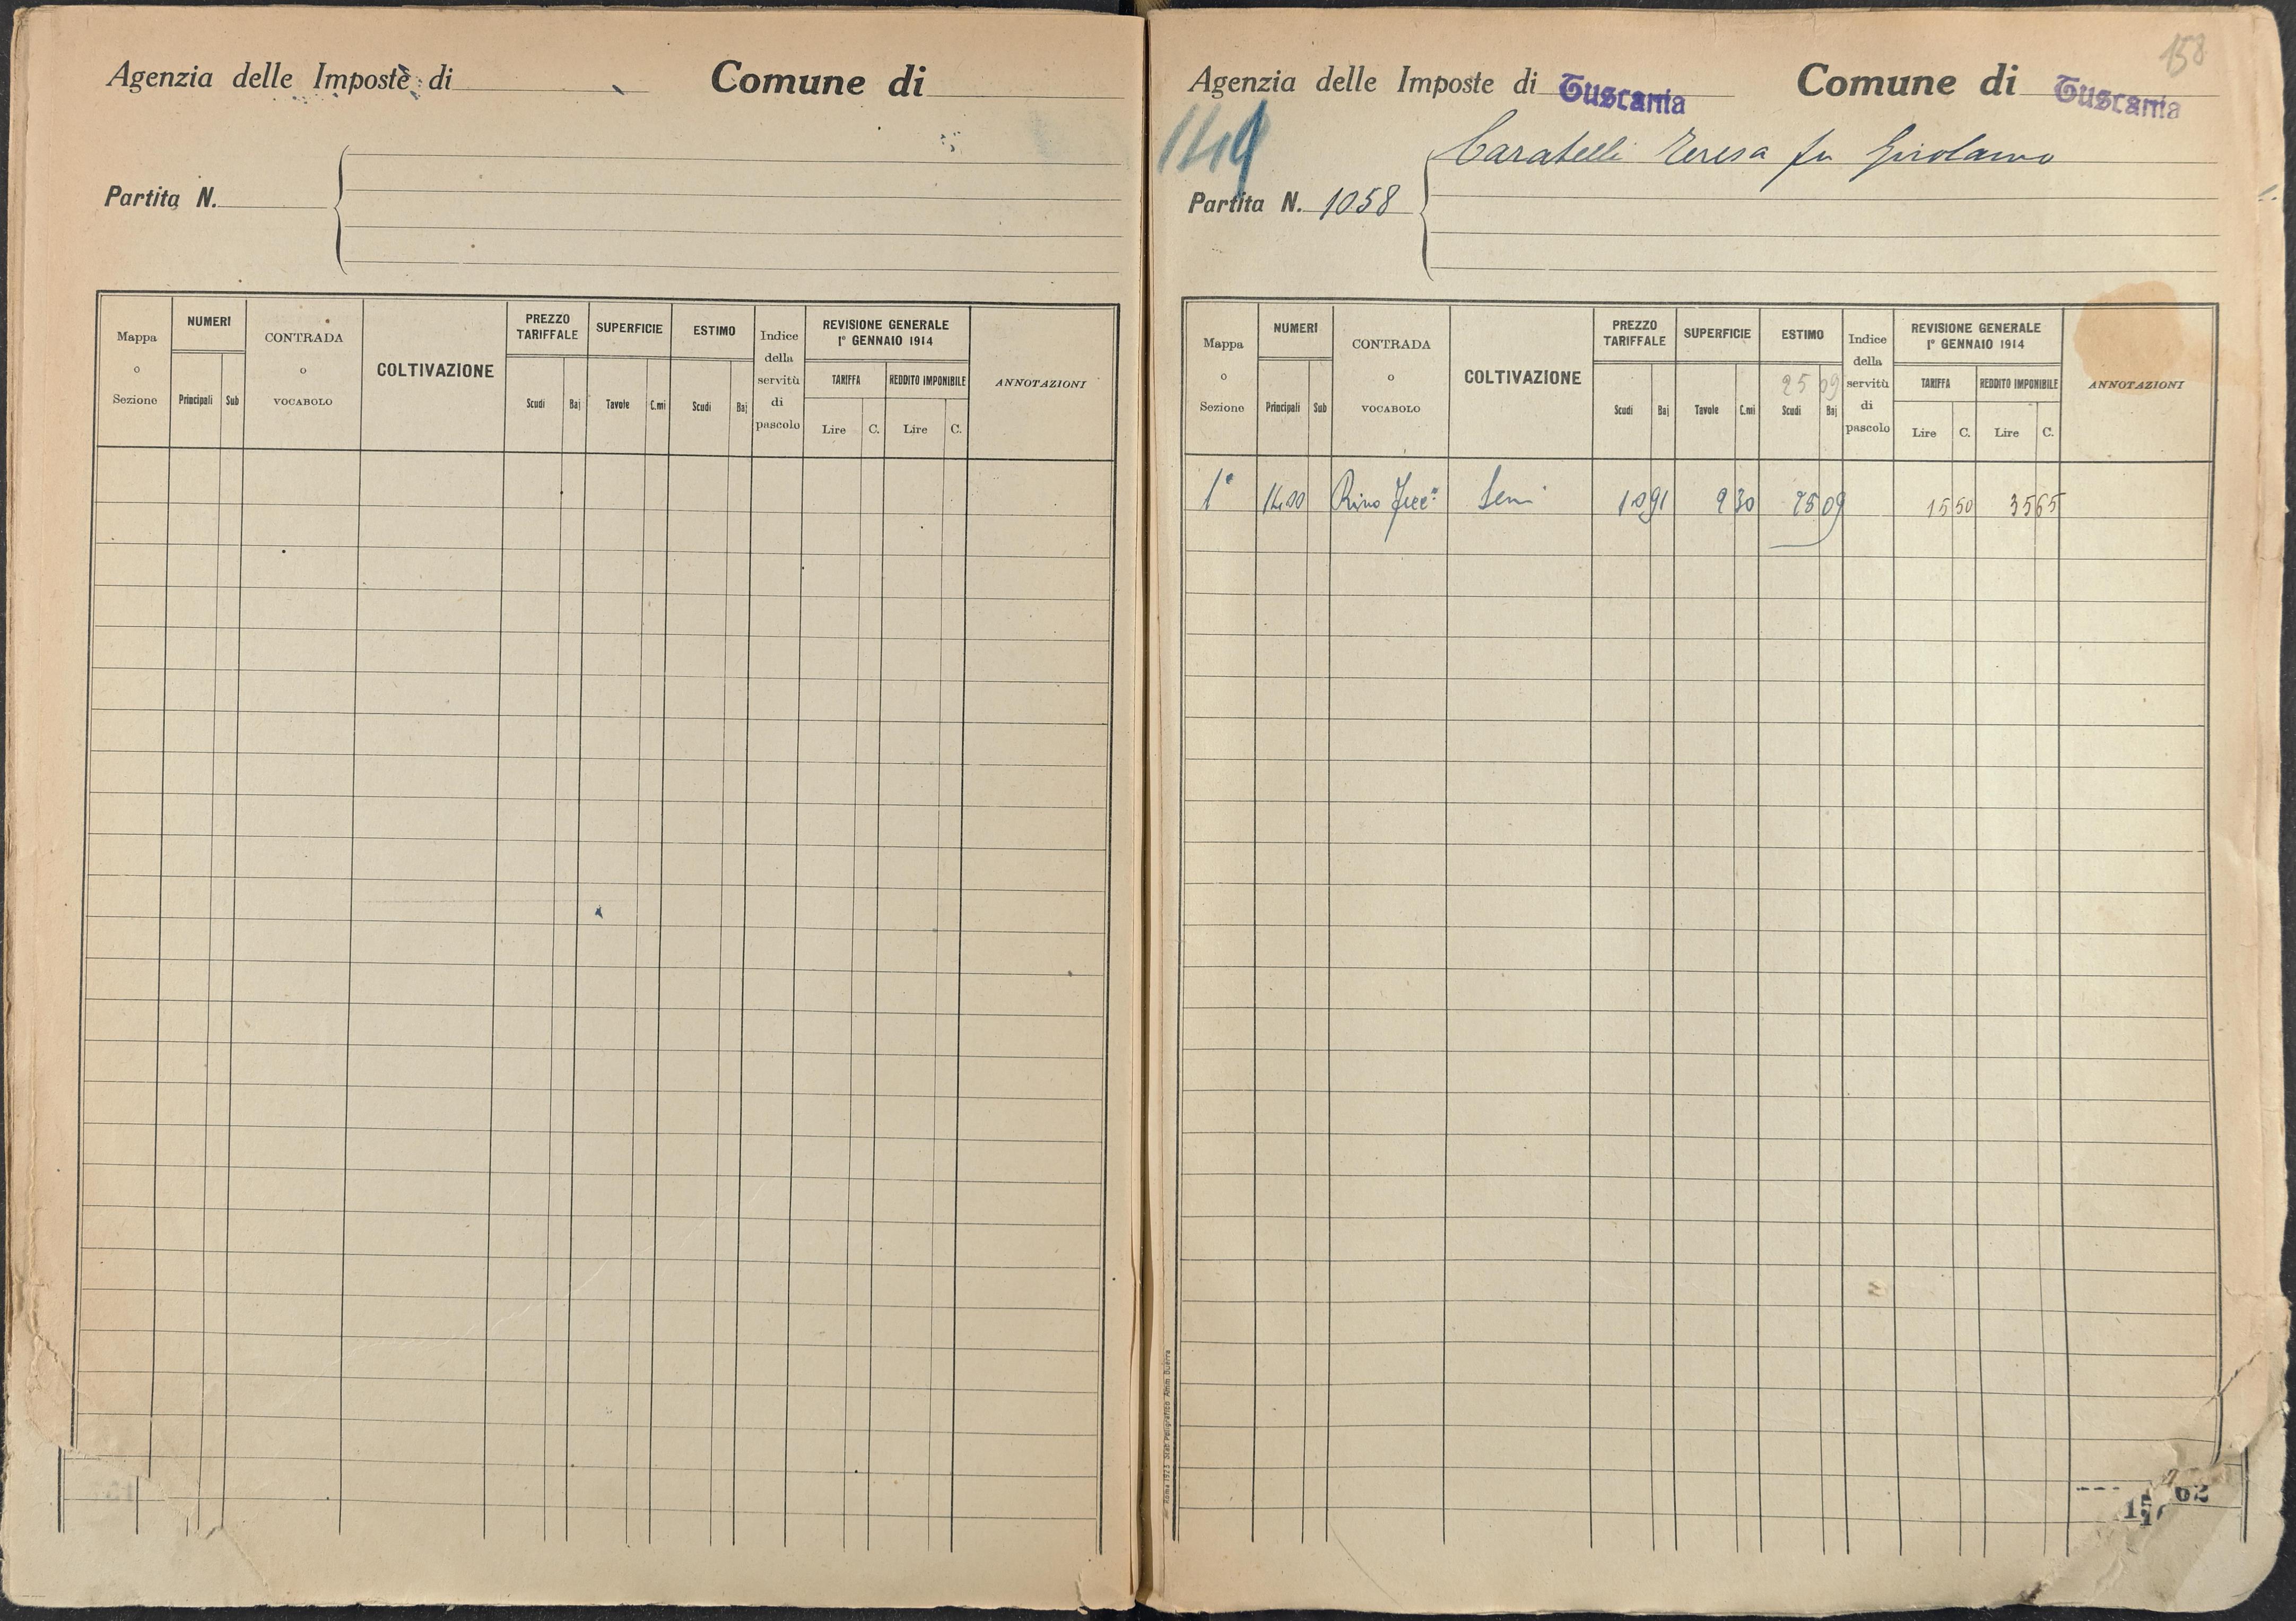 Agenzia delle Imposte di
Comune di
Partita N.
Mappa o Sezione
NUMERI
Principali Sub
CONTRADA o VOCABOLO
COLTIVAZIONE
PREZZO TARIFFALE
Scudi Baj
SUPERFICIE
Tavole C.mi
ESTIMO
Scudi Baj
Indice della servitù di pascolo
REVISIONE GENERALE
1° GENNAIO 1914
TARIFFA
Lire C.
REDDITO IMPONIBILE
Lire C.
ANNOTAZIONI
158
Agenzia delle Imposte di Tuscania
Comune di Tuscania
149
Caratelli Teresa fu Girolamo
Partita N. 1058
Mappa o Sezione
NUMERI
Principali Sub
CONTRADA o VOCABOLO
COLTIVAZIONE
PREZZO TARIFFALE
Scudi Baj
SUPERFICIE
Tavole C.mi
ESTIMO
25 09
Scudi Baj
Indice della servitù di pascolo
REVISIONE GENERALE
1° GENNAIO 1914
TARIFFA
Lire C.
REDDITO IMPONIBILE
Lire C.
ANNOTAZIONI
1° 1400 Sem 2 30 25 09 15 50 35 65
Roma 1923 Stab. Poligrafico Amm. Guerra
62